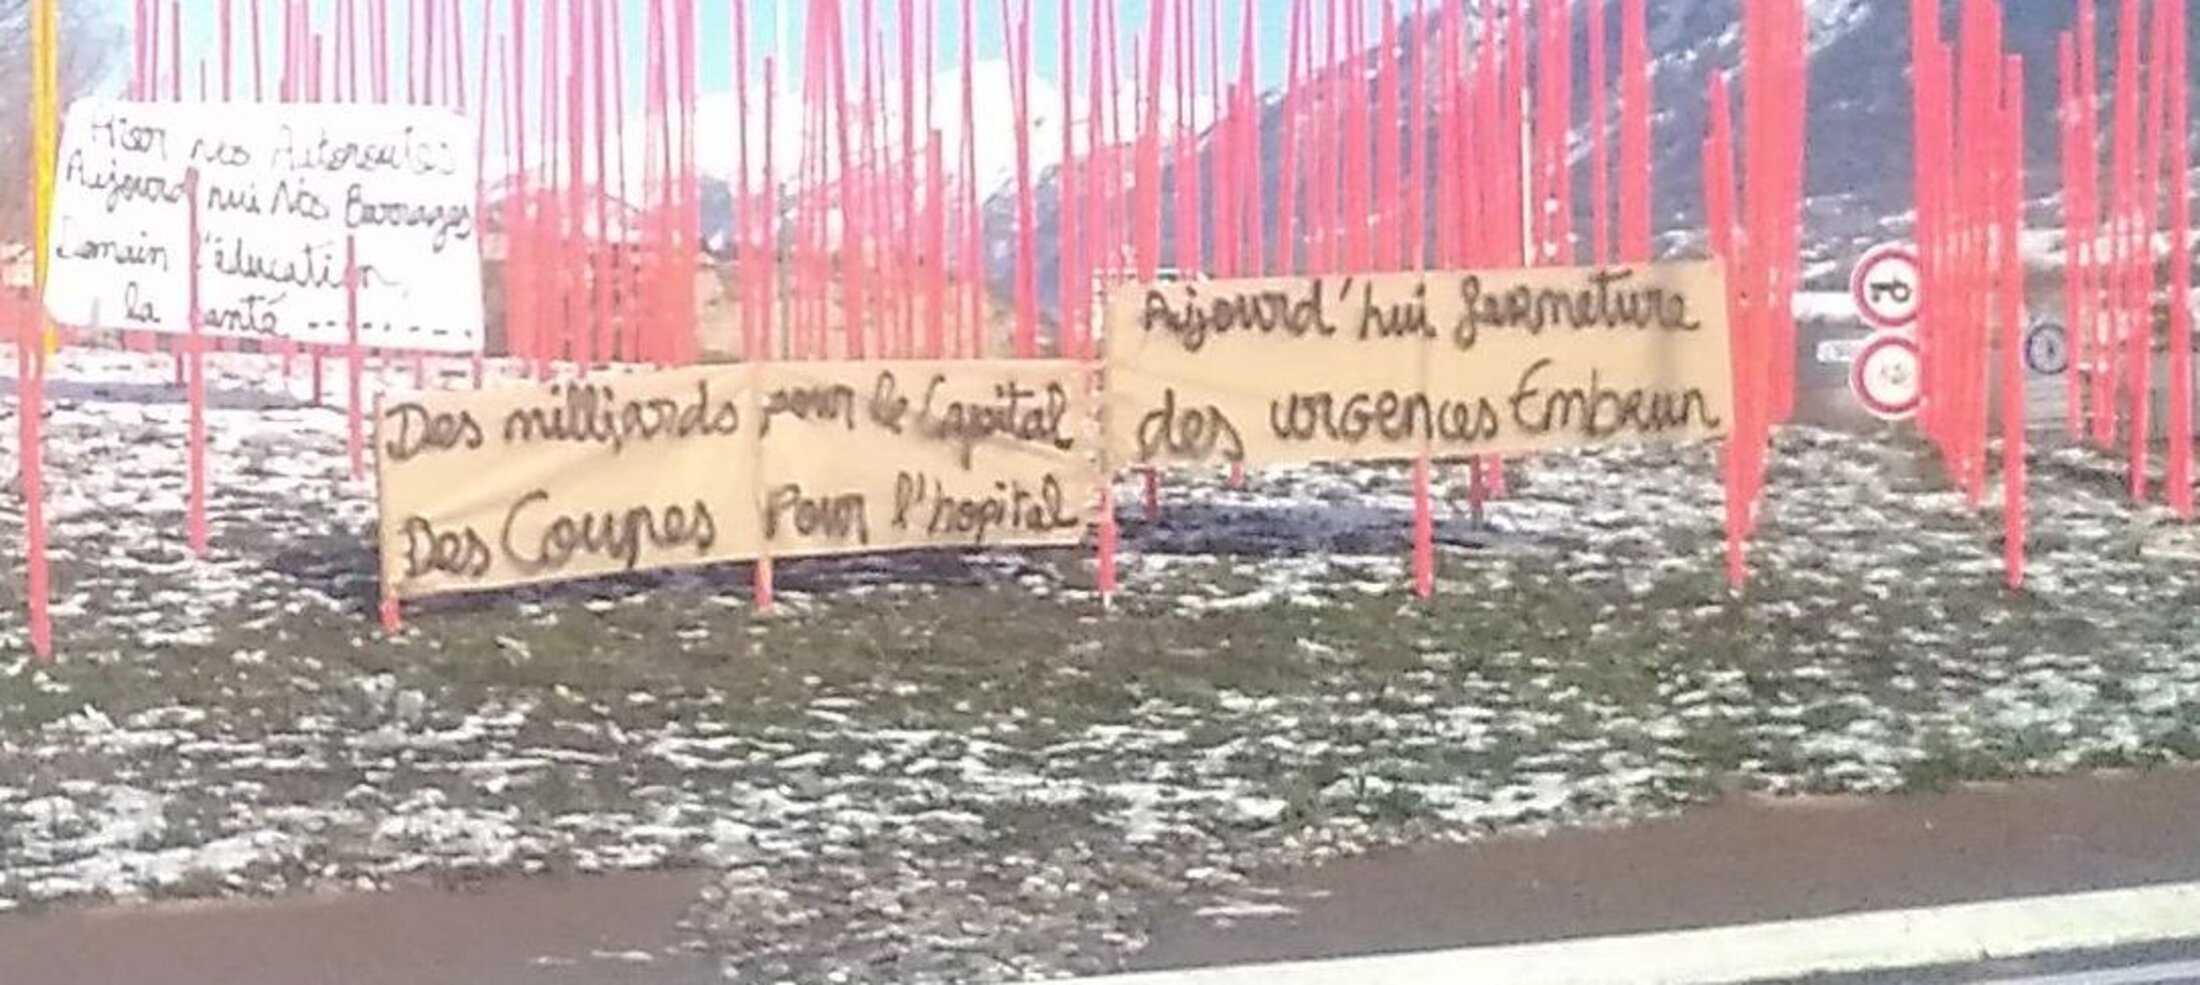 Hier nos Autoroutes
Aujourd'hui Nos Barrages
Demain l'éducation,
la santé --------
Des milliards pour le Capital
Des Coupes Pour l'hopital
Aujourd'hui fermeture
des urgences Embrun